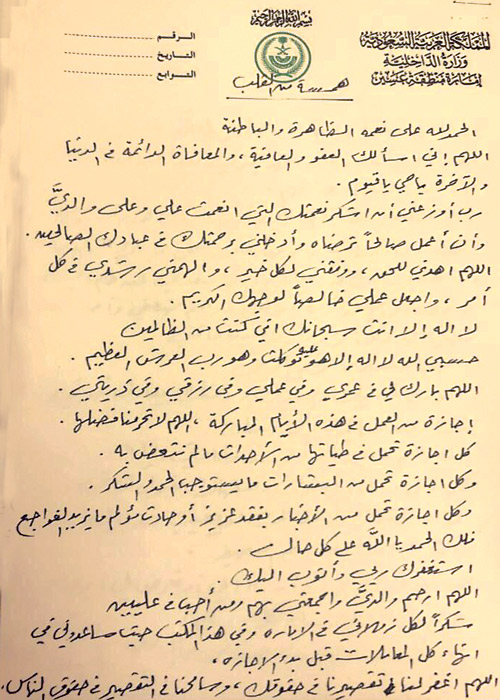 بسم الله الرحمن الرحيم
المملكة العربية السعودية
وزارة الداخلية
إمارة منطقة عسير
الرقم
التاريخ
التوابع
همسة من القلب
الحمد لله على نعمه الظاهرة والباطنة
اللهم إني اسألك العفو والعافية، والمعافاة الدائمة في الدنيا
والآخرة ياحي ياقيوم.
رب أوزعني أن اشكر نعمتك التي انعمت علي وعلى والديَّ
وأن أعمل صالحاً ترضاه وأدخلني برحمتك في عبادك الصالحين.
اللهم اهدني للحق، ووفقني لكل خير، والهمني رشدي في كل
أمر، واجعل عملي خالصاً لوجهك الكريم.
لا اله إلا انت سبحانك اني كنت من الظالمين
حسبي الله لا اله إلا هو عليه توكلت وهو رب العرش العظيم.
اللهم بارك لي في عمري وفي عملي وفي رزقي وفي ذريتي.
إجازة من العمل في هذه الأيام المباركة، اللهم لا تحرمنا فضلها.
كل اجازة تحمل في طياتها من الأحداث مالم نتعض به.
وكل اجازة تحمل من البشارات ما يستوجب الحمد والشكر.
وكل اجازة تحمل من الأخبار بفقد عزيز أو حادث مؤلم ما يزيد الفواجع
فلك الحمد يا الله على كل حال.
استغفرك ربي وأتوب اليك.
اللهم ارحم والديَّ واجمعني بهم ومن أحب في عليين
شكراً لكل زملائي في الاماره وفي هذا المكتب حيث ساعدوني في
انهاء كل المعاملات قبل بدء الاجازه،
اللهم اغفر لنا في تقصيرنا في حقوقك، وسامحنا في التقصير في حقوق الناس،